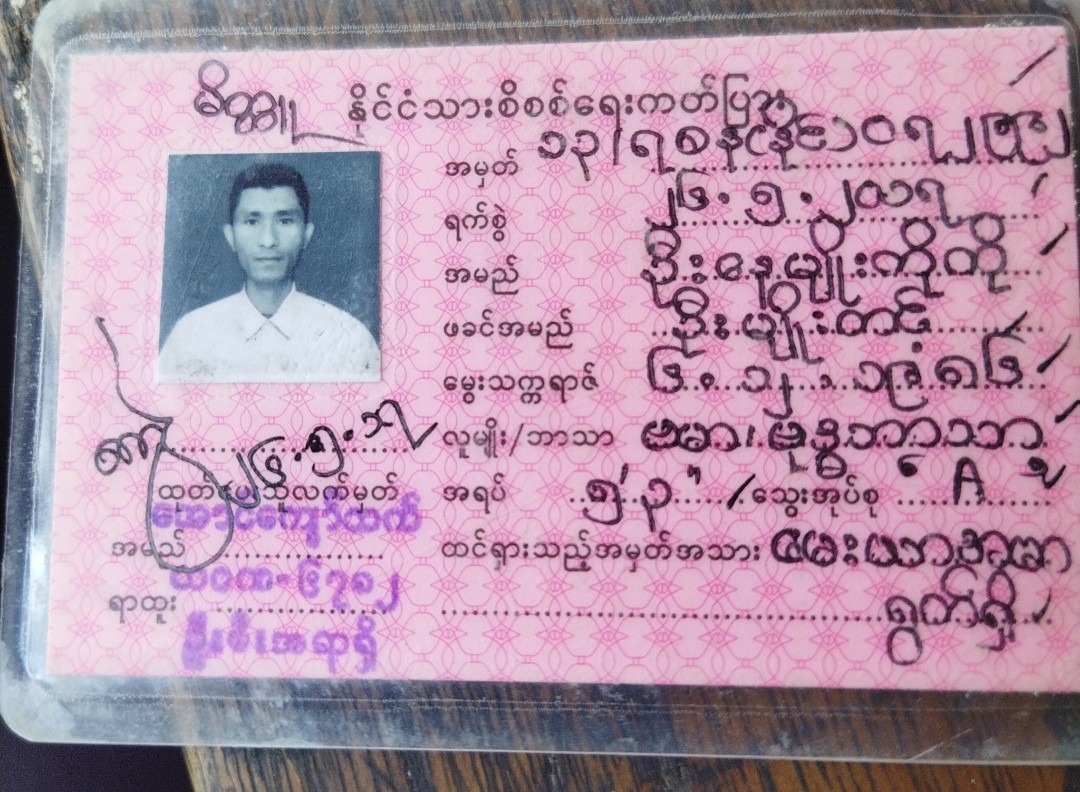 မိတ္တူ
နိုင်ငံသားစိစစ်ရေးကတ်ပြား
အမှတ် ၁၃/ရစန(နိုင်)
ရက်စွဲ ၂၆.၅.၂၀၁၇
အမည် ဦးနေမျိုးကိုကို
ဖခင်အမည် ဦးမျိုးတင်
မွေးသက္ကရာဇ် ၆.၁၂.၁၉၈၆
လူမျိုး/ဘာသာ ဗမာ၊ဗုဒ္ဓဘာသာ
အရပ် ၅'၃" သွေးအုပ်စု A
ထင်ရှားသည့်အမှတ်အသား မေးယာဘာမှာ
ရွက်ရှိ
၂၆.၅.၁၇
ထုတ်ပေးသူလက်မှတ်
အောင်ကျော်ထက်
အမည်
လဝက-၆၇၈၂
ရာထူး
ဦးစီးအရာရှိ